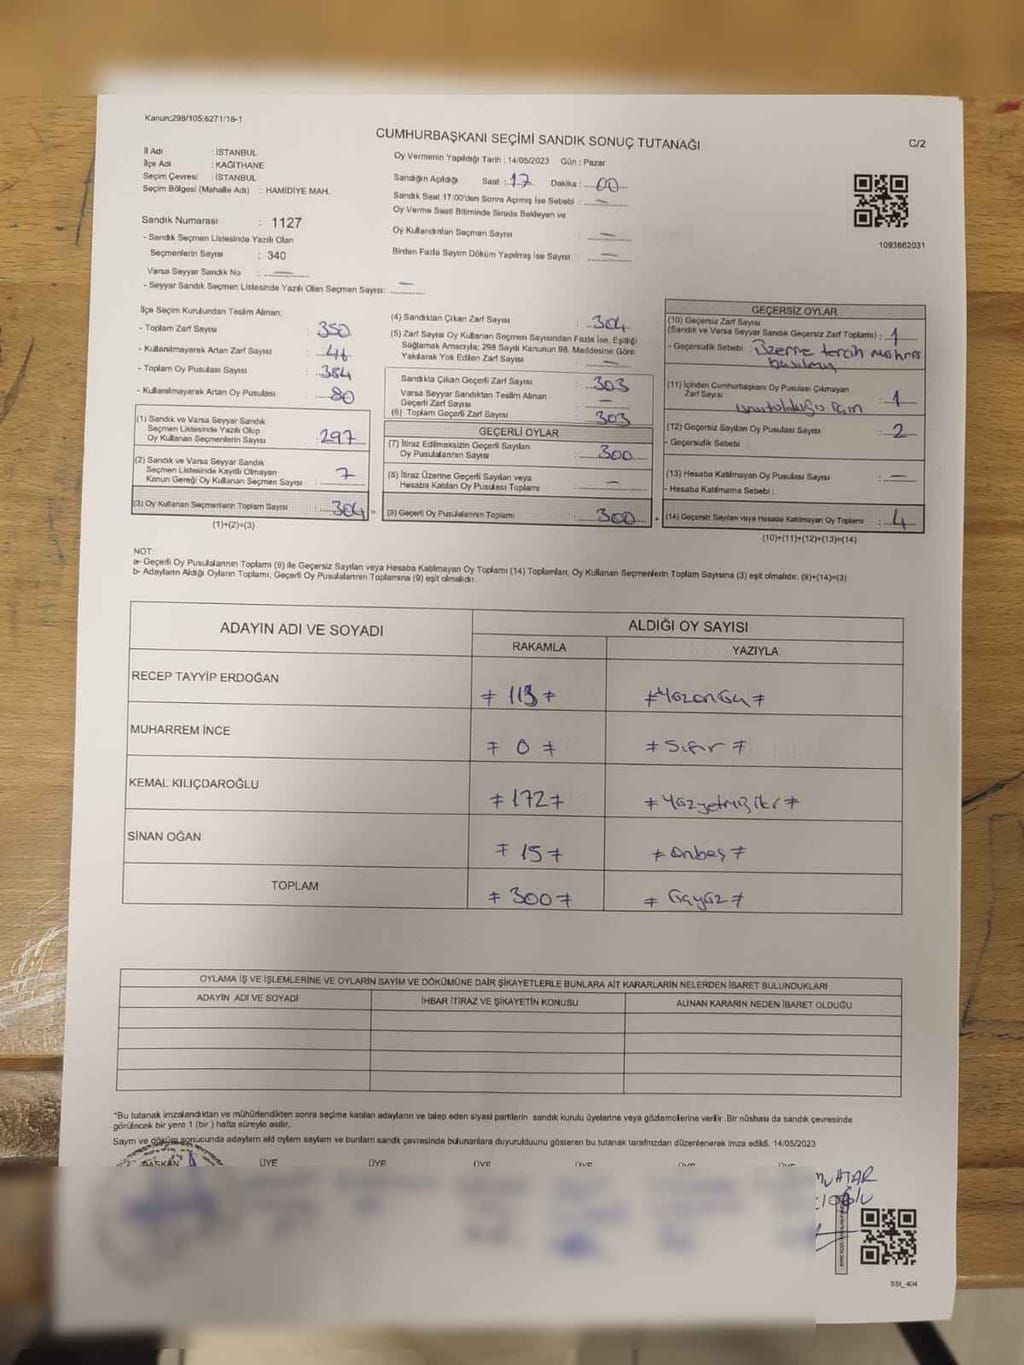 Kanun;298/105;6271/18-1
CUMHURBAŞKANI SEÇİMİ SANDIK SONUÇ TUTANAĞI
C/2
İl Adı : İSTANBUL
İlçe Adı : KAĞITHANE
Seçim Çevresi : İSTANBUL
Seçim Bölgesi (Mahalle Adı) : HAMİDİYE MAH.
Sandık Numarası : 1127
- Sandık Seçmen Listesinde Yazılı Olan
Seçmenlerin Sayısı : 340
Varsa Seyyar Sandık No : —
- Seyyar Sandık Seçmen Listesinde Yazılı Olan Seçmen Sayısı: —
Oy Vermenin Yapıldığı Tarih : 14/05/2023 Gün : Pazar
Sandığın Açıldığı Saat : 17 Dakika : 00
Sandık Saat 17:00'den Sonra Açılmış İse Sebebi : —
Oy Verme Saati Bitiminde Sırada Bekleyen ve
Oy Kullandırılan Seçmen Sayısı : —
Birden Fazla Sayım Döküm Yapılmış İse Sayısı : —
1093662031
İlçe Seçim Kurulundan Teslim Alınan;
- Toplam Zarf Sayısı : 350
- Kullanılmayarak Artan Zarf Sayısı : 46
- Toplam Oy Pusulası Sayısı : 384
- Kullanılmayarak Artan Oy Pusulası : 80
(1) Sandık ve Varsa Seyyar Sandık
Seçmen Listesinde Yazılı Olup
Oy Kullanan Seçmenlerin Sayısı : 297
(2) Sandık ve Varsa Seyyar Sandık
Seçmen Listesinde Kayıtlı Olmayan
Kanun Gereği Oy Kullanan Seçmen Sayısı : 7
(3) Oy Kullanan Seçmenlerin Toplam Sayısı : 304 =
(1)+(2)=(3)
(4) Sandıktan Çıkan Zarf Sayısı : 304
(5) Zarf Sayısı Oy Kullanan Seçmen Sayısından Fazla İse, Eşitliği
Sağlamak Amacıyla; 298 Sayılı Kanunun 98. Maddesine Göre
Yakılarak Yok Edilen Zarf Sayısı : —
Sandıkta Çıkan Geçerli Zarf Sayısı : 303
Varsa Seyyar Sandıktan Teslim Alınan
Geçerli Zarf Sayısı : —
(6) Toplam Geçerli Zarf Sayısı : 303
GEÇERLİ OYLAR
(7) İtiraz Edilmeksizin Geçerli Sayılan
Oy Pusulalarının Sayısı : 300
(8) İtiraz Üzerine Geçerli Sayılan veya
Hesaba Katılan Oy Pusulası Toplamı : —
(9) Geçerli Oy Pusulalarının Toplamı : 300 +
GEÇERSİZ OYLAR
(10) Geçersiz Zarf Sayısı
(Sandık ve Varsa Seyyar Sandık Geçersiz Zarf Toplamı) : 1
- Geçersizlik Sebebi : Üzerine tercih mührü
(11) İçinden Cumhurbaşkanı Oy Pusulası Çıkmayan
Zarf Sayısı : 1
unutulduğu için
(12) Geçersiz Sayılan Oy Pusulası Sayısı : 2
- Geçersizlik Sebebi :
(13) Hesaba Katılmayan Oy Pusulası Sayısı : —
- Hesaba Katılmama Sebebi :
(14) Geçersiz Sayılan veya Hesaba Katılmayan Oy Toplamı : 4
(10)+(11)+(12)+(13)=(14)
NOT:
a- Geçerli Oy Pusulalarının Toplamı (9) ile Geçersiz Sayılan veya Hesaba Katılmayan Oy Toplamı (14) Toplamları, Oy Kullanan Seçmenlerin Toplam Sayısına (3) eşit olmalıdır. (9)+(14)=(3)
b- Adayların Aldığı Oyların Toplamı, Geçerli Oy Pusulalarının Toplamına (9) eşit olmalıdır.
ADAYIN ADI VE SOYADI
ALDIĞI OY SAYISI
RAKAMLA YAZIYLA
RECEP TAYYİP ERDOĞAN ≠ 113 ≠
MUHARREM İNCE ≠ 0 ≠ ≠ Sıfır ≠
KEMAL KILIÇDAROĞLU ≠ 172 ≠ ≠ Yüzyetmişiki ≠
SİNAN OĞAN ≠ 15 ≠ ≠ Onbeş ≠
TOPLAM ≠ 300 ≠ ≠ Üçyüz ≠
OYLAMA İŞ VE İŞLEMLERİNE VE OYLARIN SAYIM VE DÖKÜMÜNE DAİR ŞİKAYETLERLE BUNLARA AİT KARARLARIN NELERDEN İBARET BULUNDUKLARI
ADAYIN ADI VE SOYADI İHBAR İTİRAZ VE ŞİKAYETİN KONUSU ALINAN KARARIN NEDEN İBARET OLDUĞU
*Bu tutanak imzalandıktan ve mühürlendikten sonra seçime katılan adayların ve talep eden siyasi partilerin sandık kurulu üyelerine veya gözlemcilerine verilir. Bir nüshası da sandık çevresinde
görülecek bir yere 1 (bir ) hafta süreyle asılır.
Sayım ve döküm sonucunda adayların aldı oyların sayıları ve bunların sandık çevresinde bulunanlara duyurulduunu gösteren bu tutanak tarafımızdan düzenlenerek imza edildi. 14/05/2023
BAŞKAN ÜYE ÜYE ÜYE ÜYE ÜYE ÜYE
MUHTAR
SSI_404